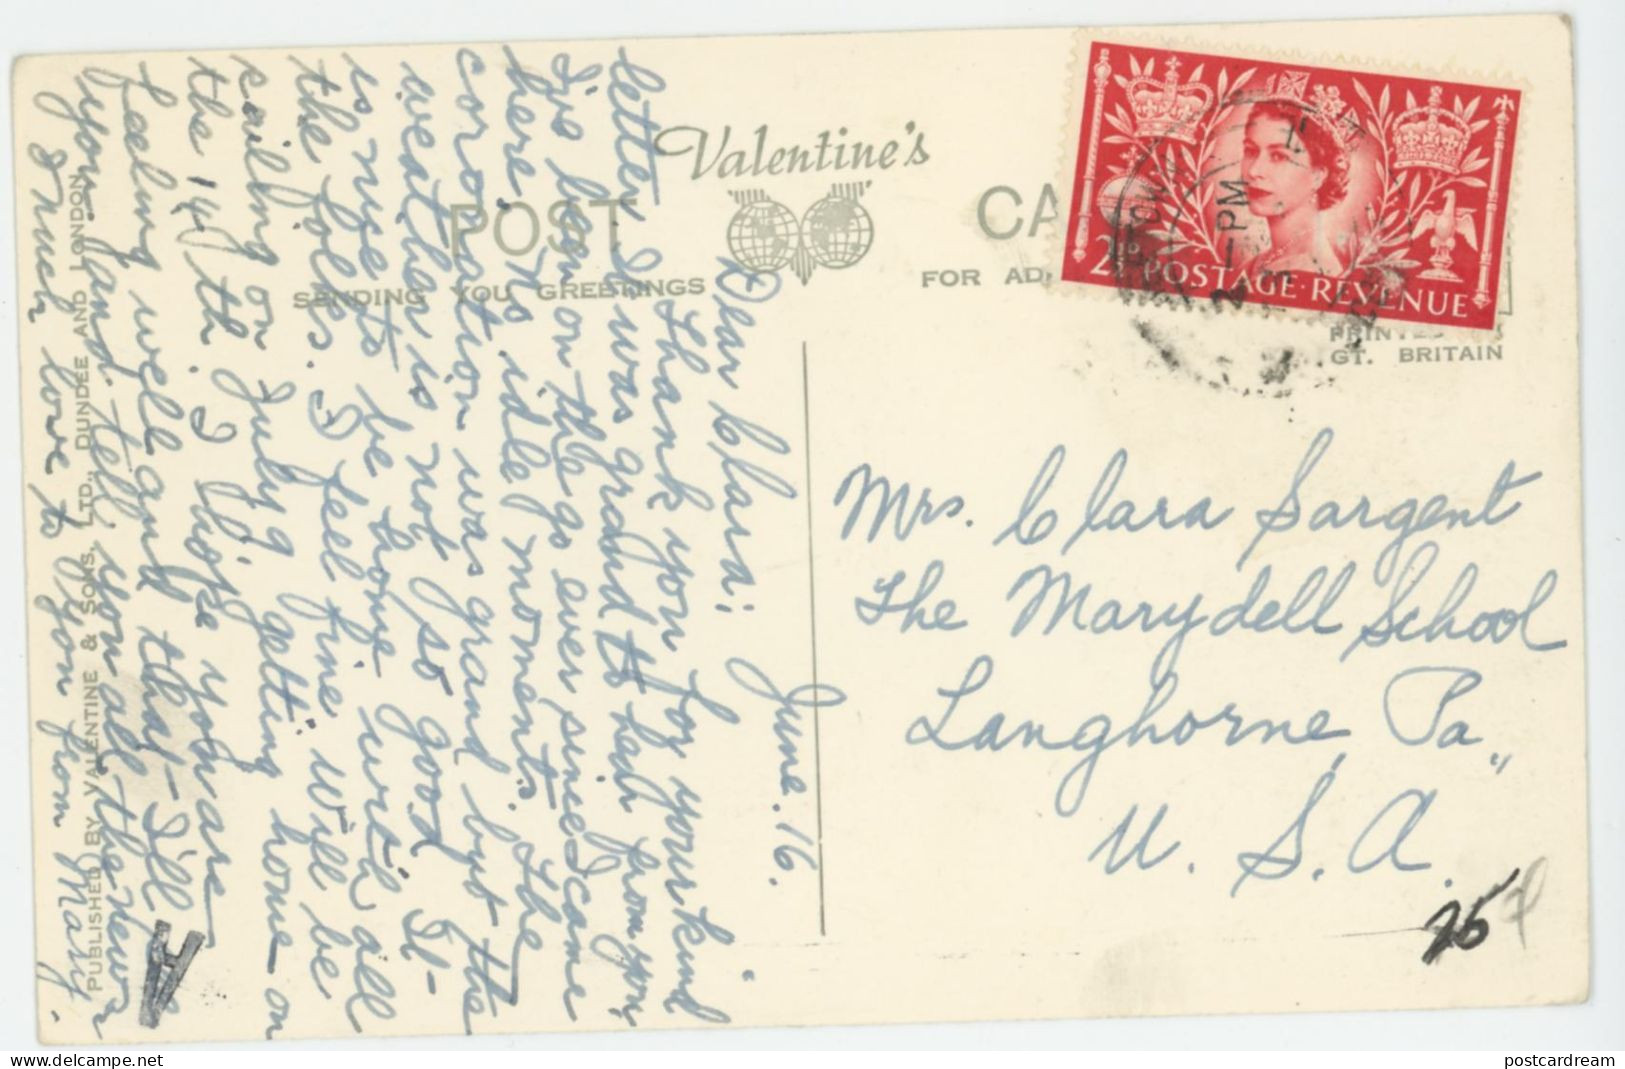 Valentine's
POST CA
SENDING YOU GREETINGS
FOR AD
2½D POSTAGE · REVENUE
PM
PRINTED
GT. BRITAIN
June. 16.
Dear Clara:
Thank you for your kind
letter. It was grand to hear from you.
I've been on the go ever since I came
here. No idle moments. The
coronation was grand but the
weather is not so good. It
is nice to be home with all
the folks. I feel fine. Will be
sailing on July 9 getting home on
the 14th. I hope you are
feeling well and that I'll see
you and tell you all the news
& much love to you from Mary.
PUBLISHED BY VALENTINE & SONS, LTD., DUNDEE AND LONDON
Mrs. Clara Sargent
The Marydell School
Langhorne, Pa.,
U. S. A.
postcardream